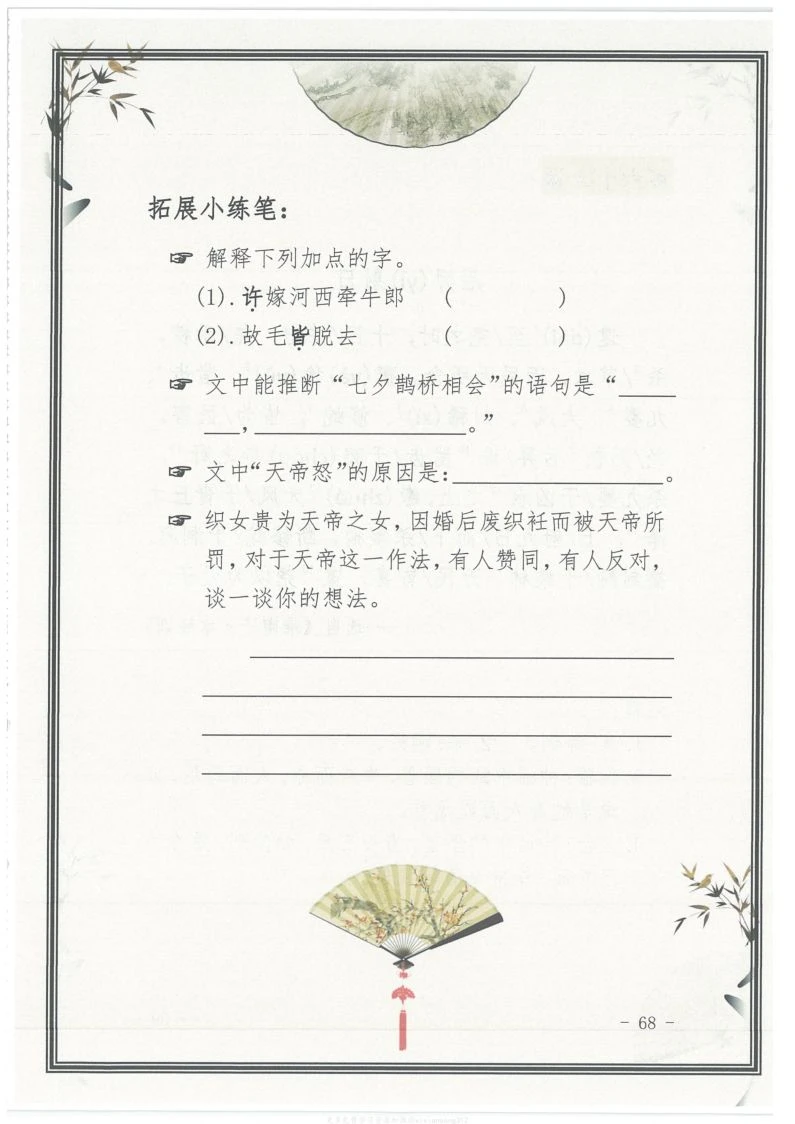 拓展小练笔：
☞ 解释下列加点的字。
(1).许嫁河西牵牛郎 （ ）
(2).故毛皆脱去 （ ）
☞ 文中能推断“七夕鹊桥相会”的语句是“_____
___，__________________。”
☞ 文中“天帝怒”的原因是：__________________。
☞ 织女贵为天帝之女，因婚后废织衽而被天帝所
罚，对于天帝这一作法，有人赞同，有人反对，
谈一谈你的想法。
- 68 -